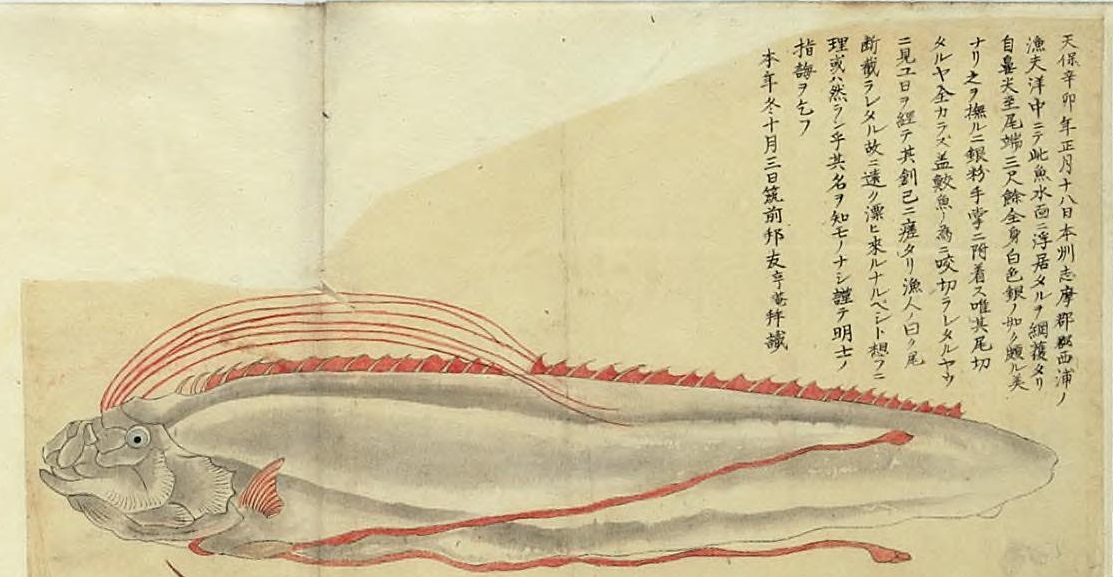 天保辛卯年正月十八日本州志摩郡西浦ノ
漁夫洋中ニテ此魚水面ニ浮居タルヲ網獲タリ
自鼻尖至尾端三尺餘全身白色銀ノ如ク頗ル美
ナリ之ヲ撫ルニ銀粉手掌ニ附着ス唯其尾切
タルヤ全カラズ盖鮫魚ノ為ニ咬切ラレタルヤウ
ニ見ユ日ヲ經テ其創已ニ瘥タリ漁人ノ曰ク尾
断截ラレタル故ニ遠ク漂ヒ來ルナルベシト想フニ
理或ハ然ラン乎其名ヲ知モノナシ謹テ明士ノ
指誨ヲ乞フ
本年冬十月三日筑前邦友亭菴拜識